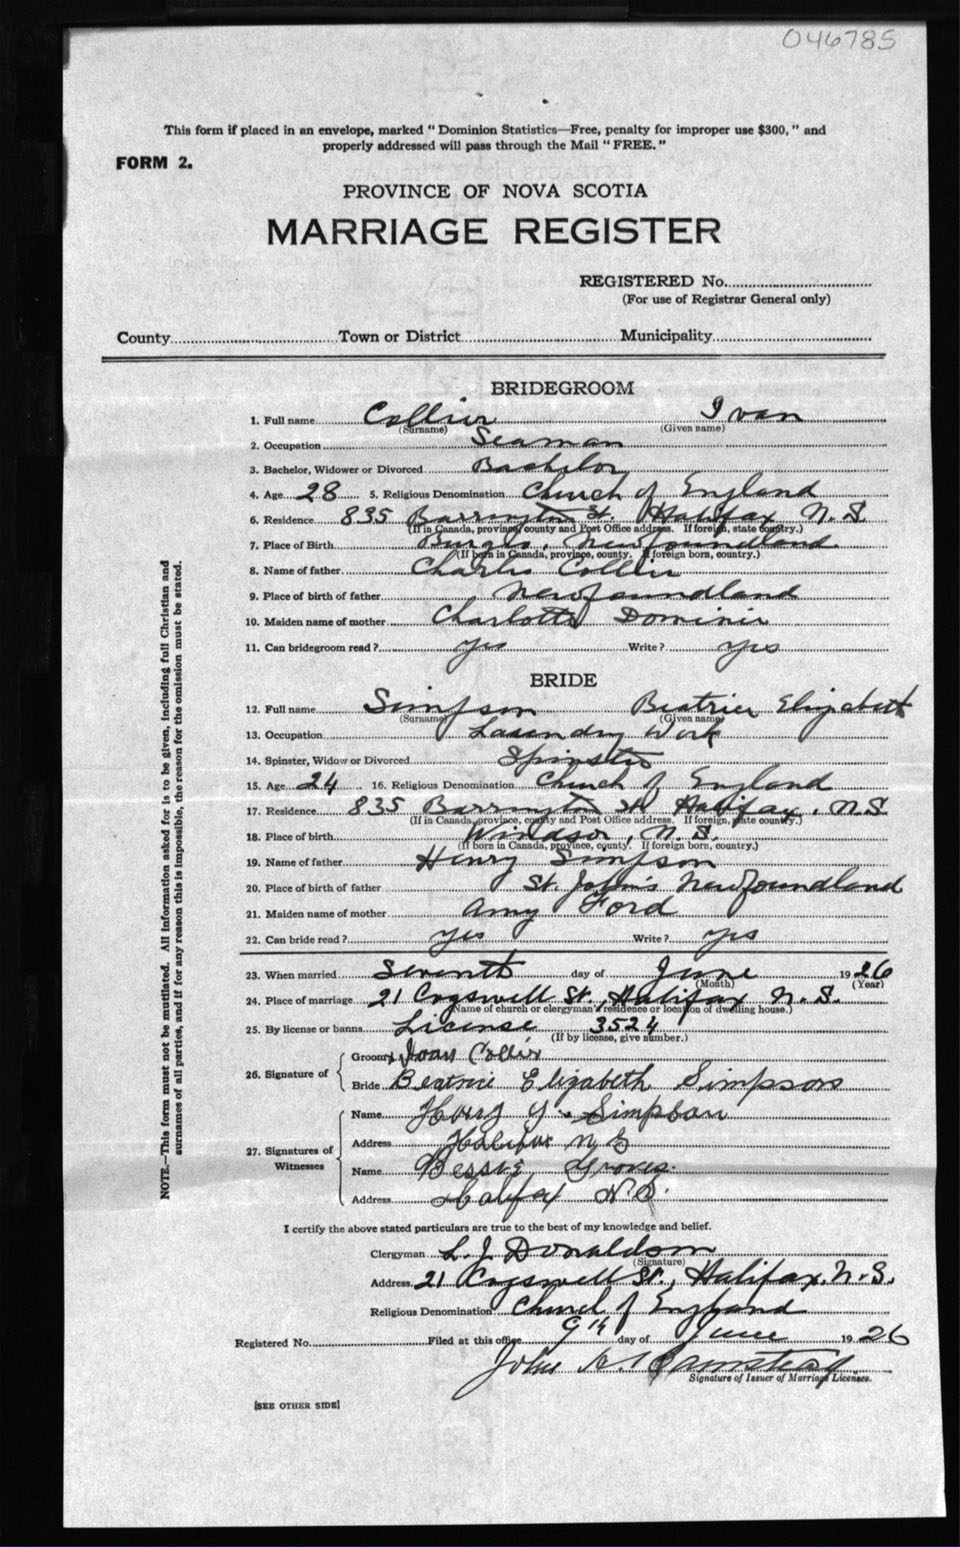 046785
This form if placed in an envelope, marked "Dominion Statistics—Free, penalty for improper use $300," and
properly addressed will pass through the Mail "FREE."
FORM 2.
PROVINCE OF NOVA SCOTIA
MARRIAGE REGISTER
REGISTERED No.
(For use of Registrar General only)
County Town or District Municipality
BRIDEGROOM
1. Full name Collier Ivan
(Surname) (Given name)
2. Occupation Seaman
3. Bachelor, Widower or Divorced Bachelor
4. Age 28 5. Religious Denomination Church of England
6. Residence 835 Barrington St. Halifax N.S.
(If in Canada, province, county and Post Office address. If foreign, state country.)
7. Place of Birth Newfoundland
(If born in Canada, province, county. If foreign born, country.)
8. Name of father Charles Collier
9. Place of birth of father Newfoundland
10. Maiden name of mother Charlotte
11. Can bridegroom read? yes Write? yes
BRIDE
12. Full name Simpson Beatrice Elizabeth
(Surname) (Given name)
13. Occupation Laundry Work
14. Spinster, Widow or Divorced Spinster
15. Age 24 16. Religious Denomination Church of England
17. Residence 835 Barrington St Halifax. N.S.
(If in Canada, province, county and Post Office address. If foreign, state country.)
18. Place of birth Windsor, N.S.
(If born in Canada, province, county. If foreign born, country.)
19. Name of father Henry Simpson
20. Place of birth of father St. John's Newfoundland
21. Maiden name of mother Amy Ford
22. Can bride read? yes Write? yes
23. When married Seventh day of June 1926
(Month) (Year)
24. Place of marriage 21 Cogswell St., Halifax N.S.
(Name of church or clergyman's residence or location of dwelling house.)
25. By license or banns License 3524
(If by license, give number.)
26. Signature of
Groom x Ivan Collier
Bride Beatrice Elizabeth Simpson
27. Signatures of Witnesses
Name Simpson
Address Halifax N S
Name Bessie Groves.
Address Halifax N.S.
I certify the above stated particulars are true to the best of my knowledge and belief.
Clergyman L. J. Donaldson
(Signature)
Address 21 Cogswell St., Halifax. N.S.
Religious Denomination Church of England
Registered No. Filed at this office 9th day of June 1926
John
Signature of Issuer of Marriage Licenses.
[SEE OTHER SIDE]
NOTE.—This form must not be mutilated. All information asked for is to be given, including full Christian and
surnames of all parties, and if for any reason this is impossible, the reason for the omission must be stated.